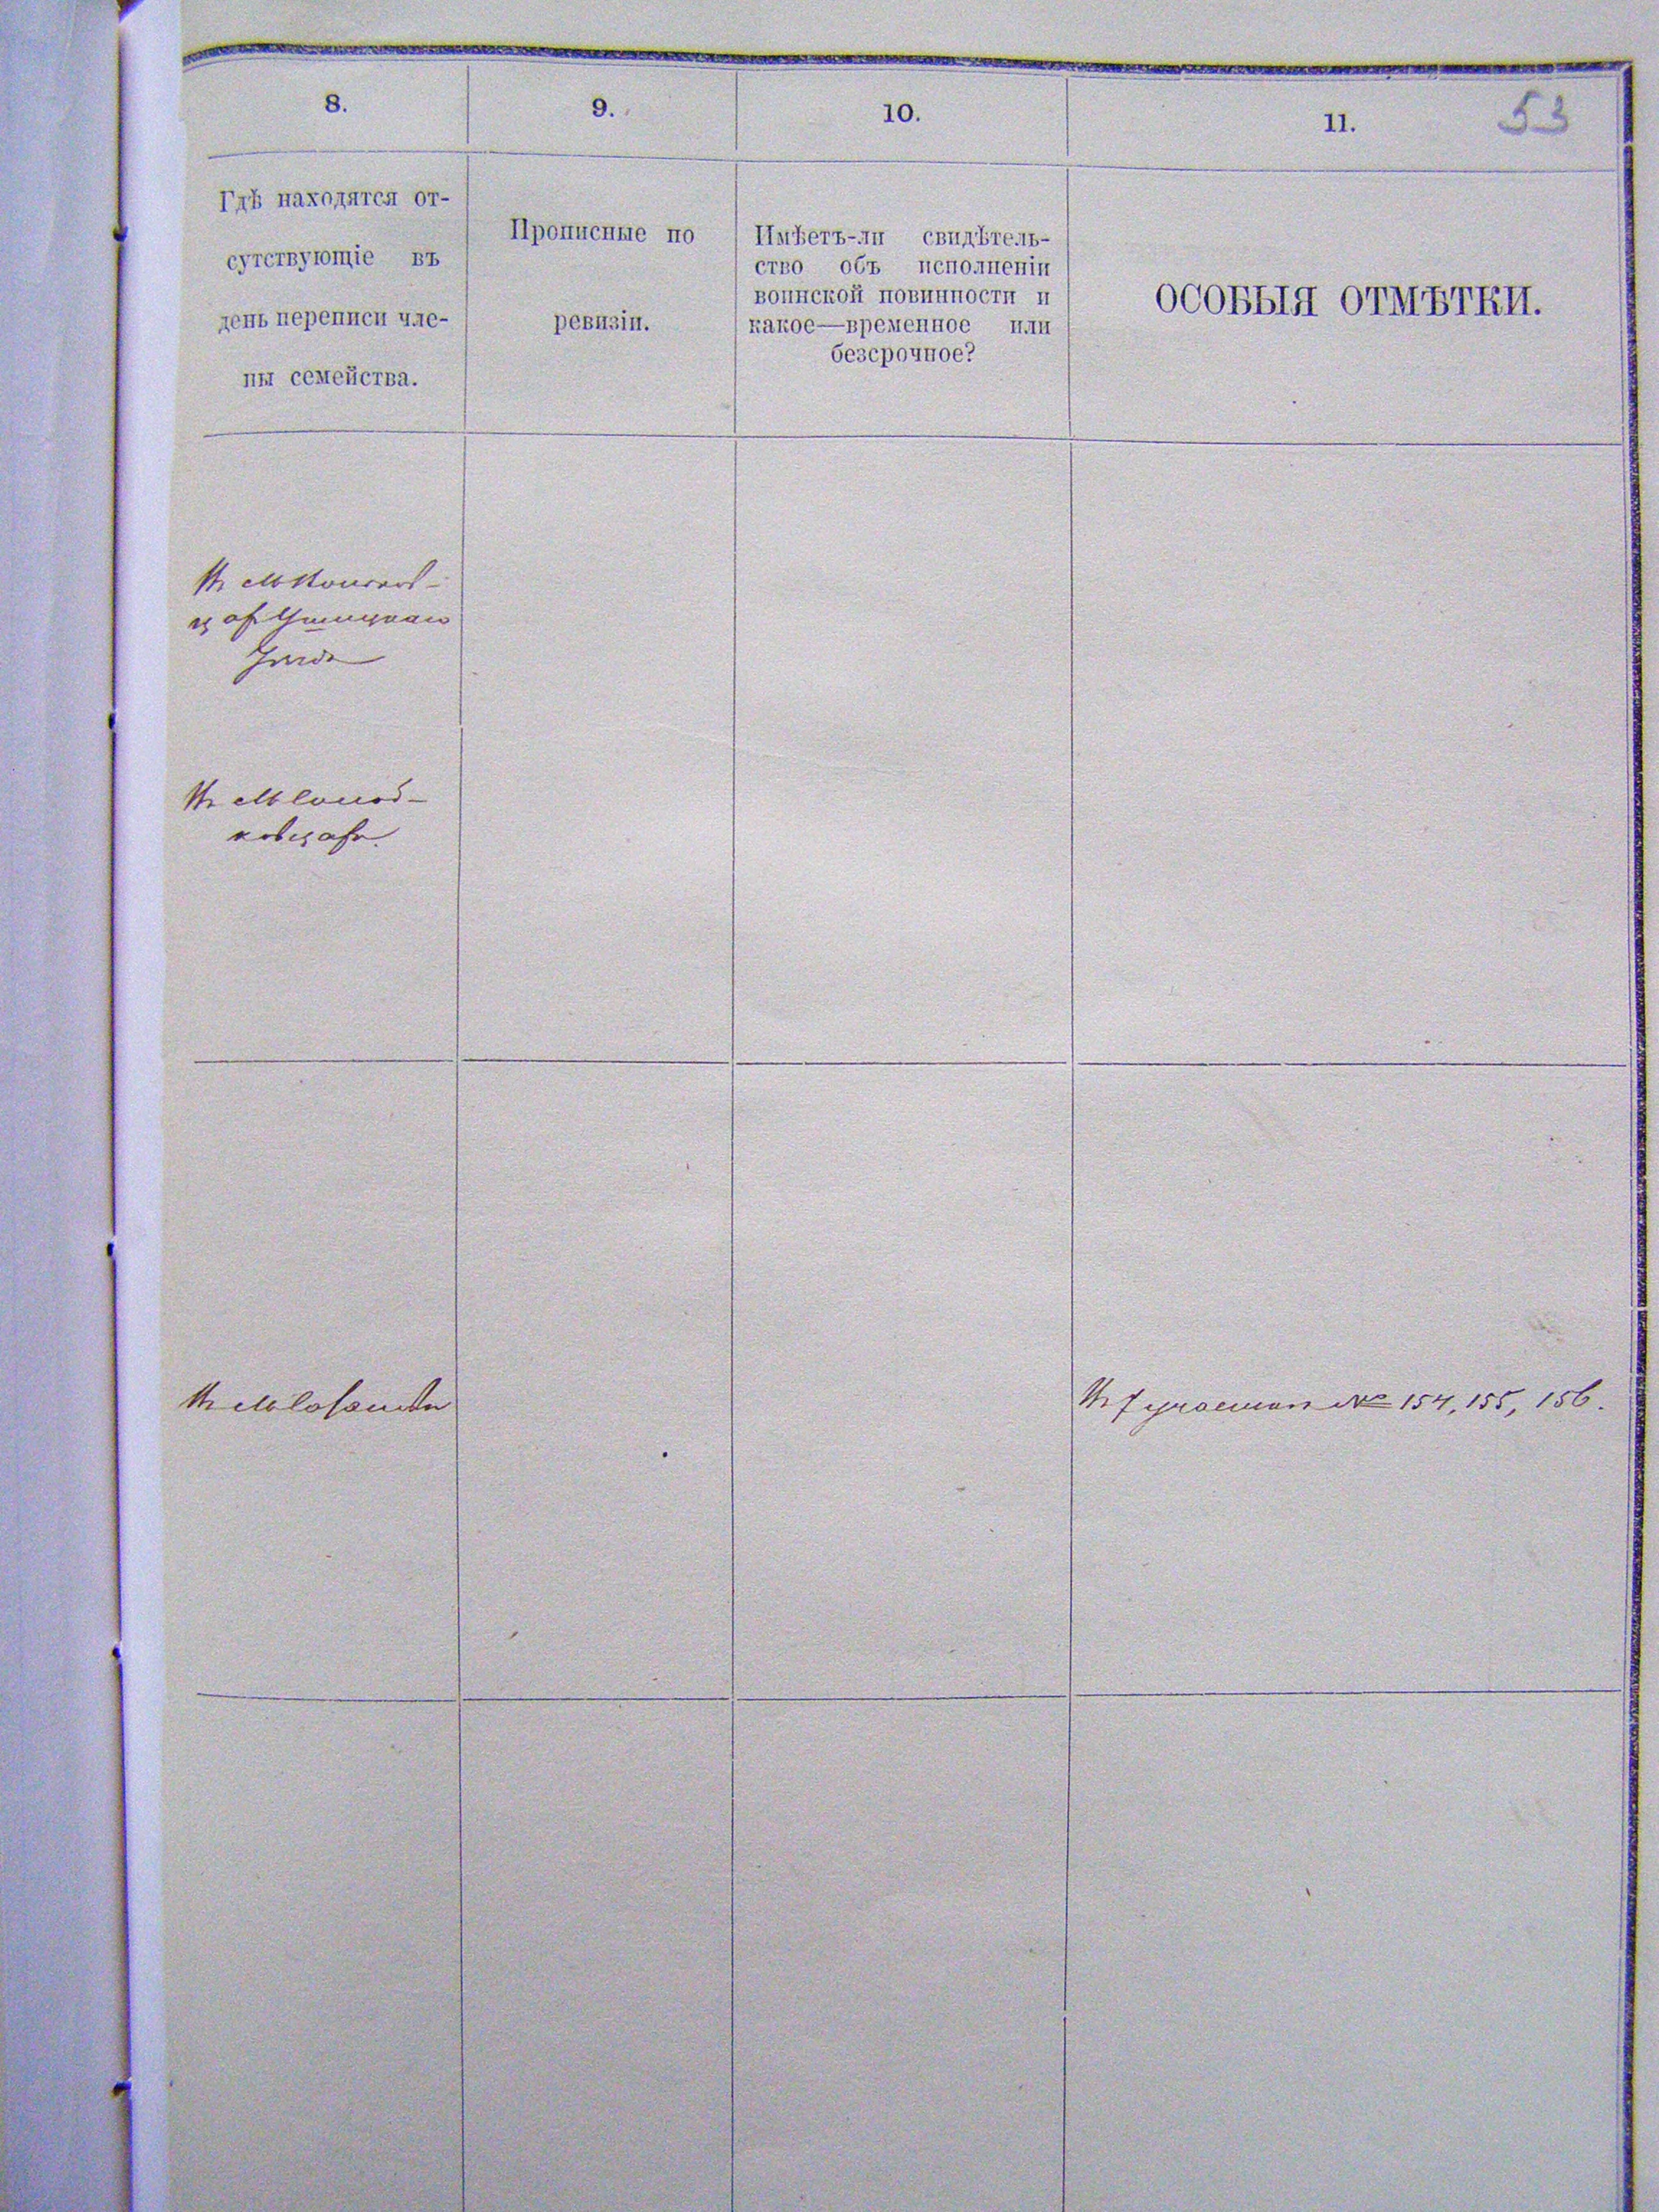 8.
9.
10.
11.
53
Гдѣ находятся от-
сутствующіе въ
день переписи чле-
ны семейства.
Прописные по
ревизіи.
Имѣетъ-ли свидѣтель-
ство объ исполненіи
воинской повинности и
какое—временное или
безсрочное?
ОСОБЫЯ ОТМѢТКИ.
Въ М
Ушицкаго
Уѣзда
Въ М Солод-
ковцахъ.
Въ М
Въ 7 участкѣ № 154, 155, 156.